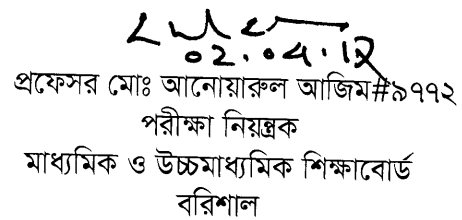 02.04.12
প্রফেসর মোঃ আনোয়ারুল আজিম#৯৭৭২
পরীক্ষা নিয়ন্ত্রক
মাধ্যমিক ও উচ্চমাধ্যমিক শিক্ষাবোর্ড
বরিশাল